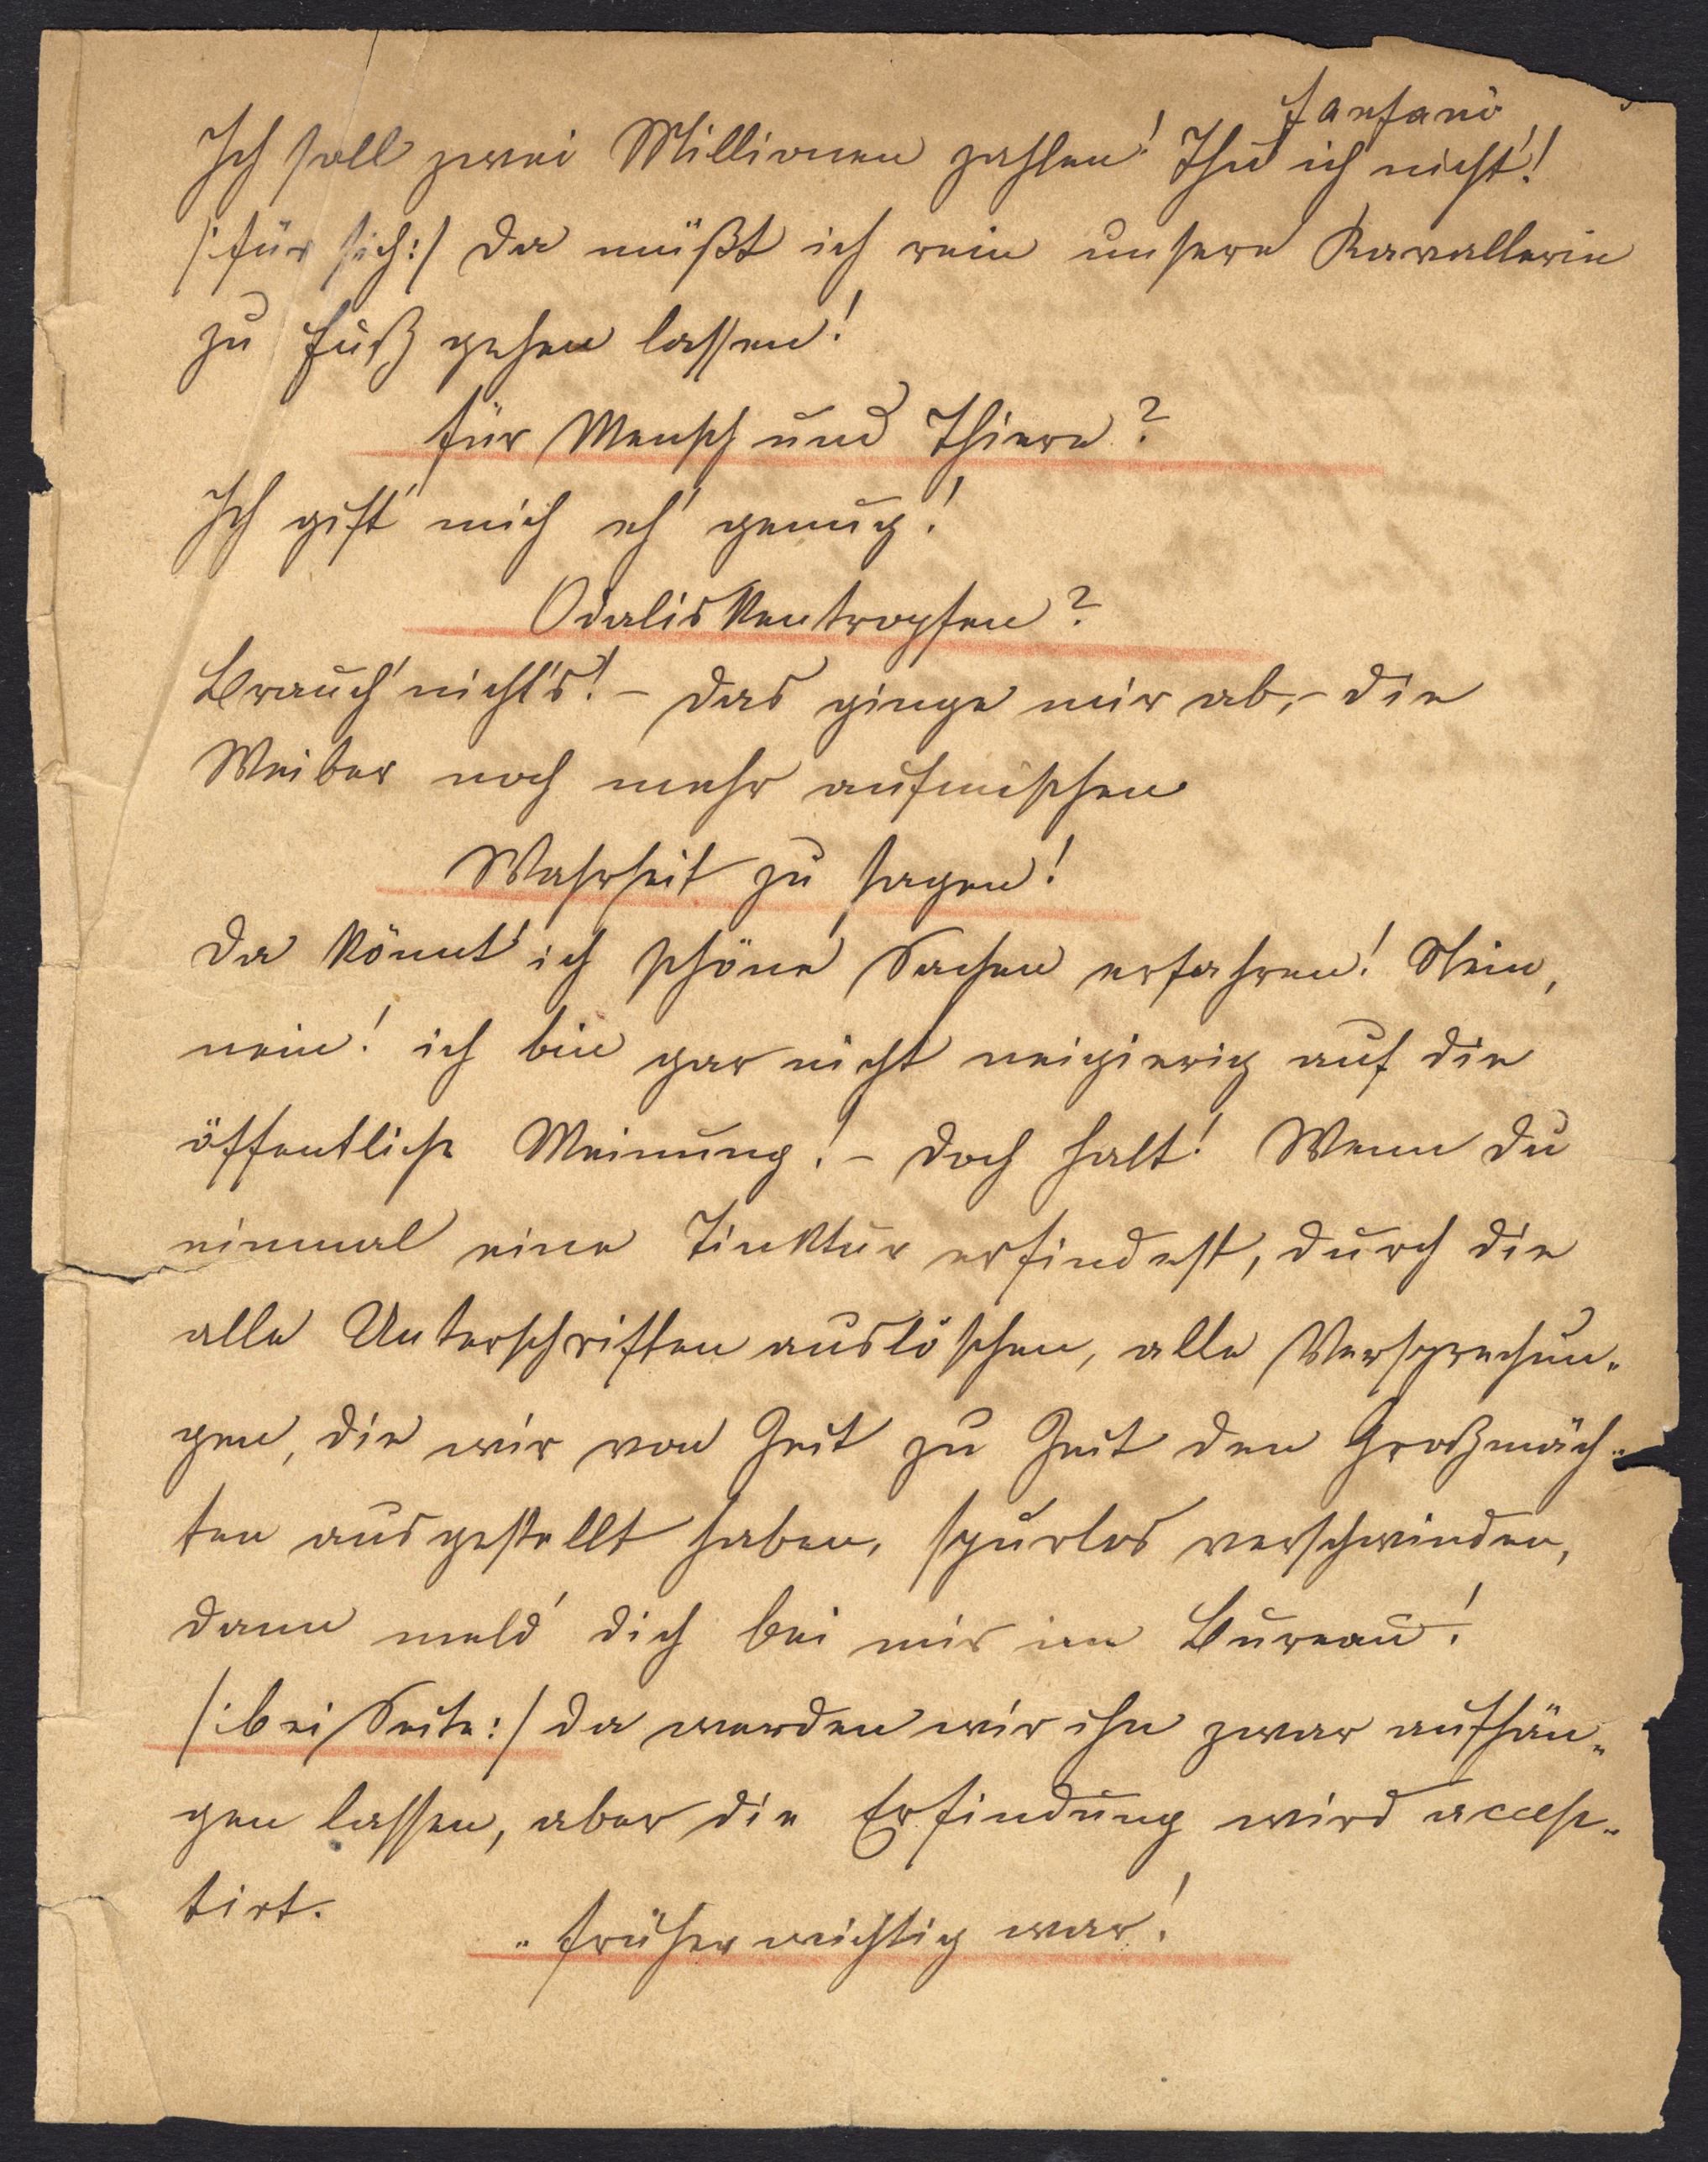 Fanfani
Ich soll zwei Millionen zahlen! Thu' ich nicht!
/:für sich:/ Da müßt ich rein unsere Kavallerie
zu Fuß gehen lassen!
für Mensch und Thiere?
Ich gift' mich eh' genug!
Odaliskentropfen?
Brauch' nicht's! – Das ginge mir ab, – die
Weiber noch mehr aufmischen
Wahrheit zu sagen!
Da könnt' ich schöne Sachen erfahren! Nein,
nein! ich bin gar nicht neigierig auf die
öffentliche Meinung! – Doch halt! Wenn du
einmal eine Tinktur erfindest, durch die
alle Unterschriften auslöschen, alle Versprechun„
gen, die wir von Zeit zu Zeit den Großmäch„
ten ausgestellt haben, spurlos verschwinden,
dann meld' dich bei mir im Bureau!
/:bei Seite:/ Da werden wir ihn zwar aufhän„
gen lassen, aber die Erfindung wird accep„
tirt.
„ früher wichtig war!